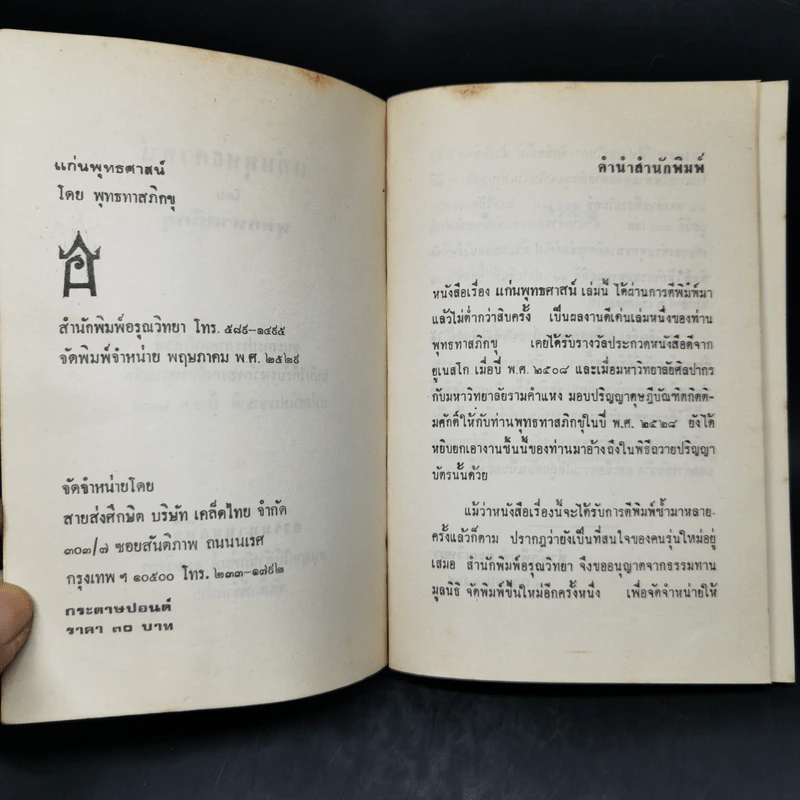 แก่นพุทธศาสน์
โดย พุทธทาสภิกขุ
สำนักพิมพ์อรุณวิทยา โทร. ๕๘๙-๑๔๙๕
จัดพิมพ์จำหน่าย พฤษภาคม พ.ศ. ๒๕๒๙
จัดจำหน่ายโดย
สายส่งศึกษิต บริษัท เคล็ดไทย จำกัด
๓๐๓/๗ ซอยสันติภาพ ถนนนเรศ
กรุงเทพ ฯ ๑๐๕๐๐ โทร. ๒๓๓-๑๗๙๒
กระดาษปอนด์
ราคา ๓๐ บาท
คำนำสำนักพิมพ์
หนังสือเรื่อง แก่นพุทธศาสน์ เล่มนี้ ได้ผ่านการตีพิมพ์มา
แล้วไม่ต่ำกว่าสิบครั้ง เป็นผลงานดีเด่นเล่มหนึ่งของท่าน
พุทธทาสภิกขุ เคยได้รับรางวัลประกวดหนังสือดีจาก
ยูเนสโก เมื่อปี พ.ศ. ๒๕๐๘ และเมื่อมหาวิทยาลัยศิลปากร
กับมหาวิทยาลัยรามคำแหง มอบปริญญาดุษฎีบัณฑิตกิตติ-
มศักดิ์ให้กับท่านพุทธทาสภิกขุในปี พ.ศ. ๒๕๒๘ ยังได้
หยิบยกเอางานชิ้นนี้ของท่านมาอ้างถึงในพิธีถวายปริญญา
บัตรนั้นด้วย
แม้ว่าหนังสือเรื่องนี้จะได้รับการตีพิมพ์ซ้ำมาหลาย-
ครั้งแล้วก็ตาม ปรากฏว่ายังเป็นที่สนใจของคนรุ่นใหม่อยู่
เสมอ สำนักพิมพ์อรุณวิทยา จึงขออนุญาตจากธรรมทาน
มูลนิธิ จัดพิมพ์ขึ้นใหม่อีกครั้งหนึ่ง เพื่อจัดจำหน่ายให้